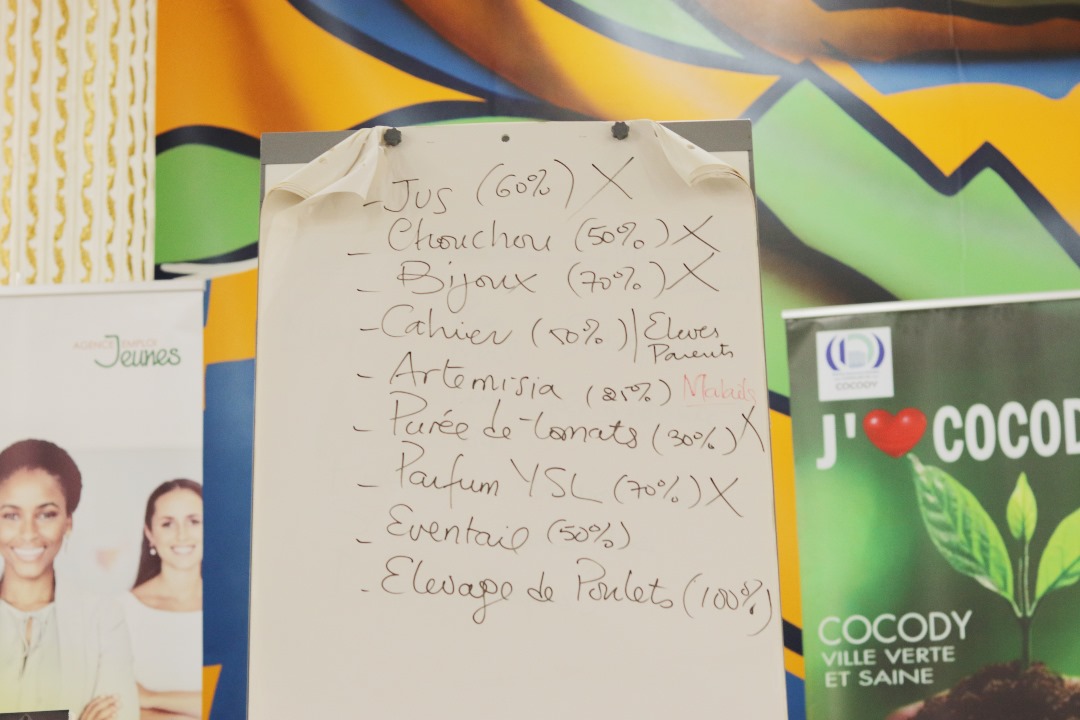 - Jus (60%) X
- Chouchou (50%) X
- Bijoux (70%) X
- Cahier (50%) | Eleves
Parents
- Artemisia (25%)
- Purée de tomats (30%) X
- Parfum YSL (70%) X
- Eventail (50%)
- Elevage de Poulets (100%)
AGENCE EMPLOI
Jeunes
COCODY
J'❤ COCOD
COCODY
VILLE VERTE
ET SAINE